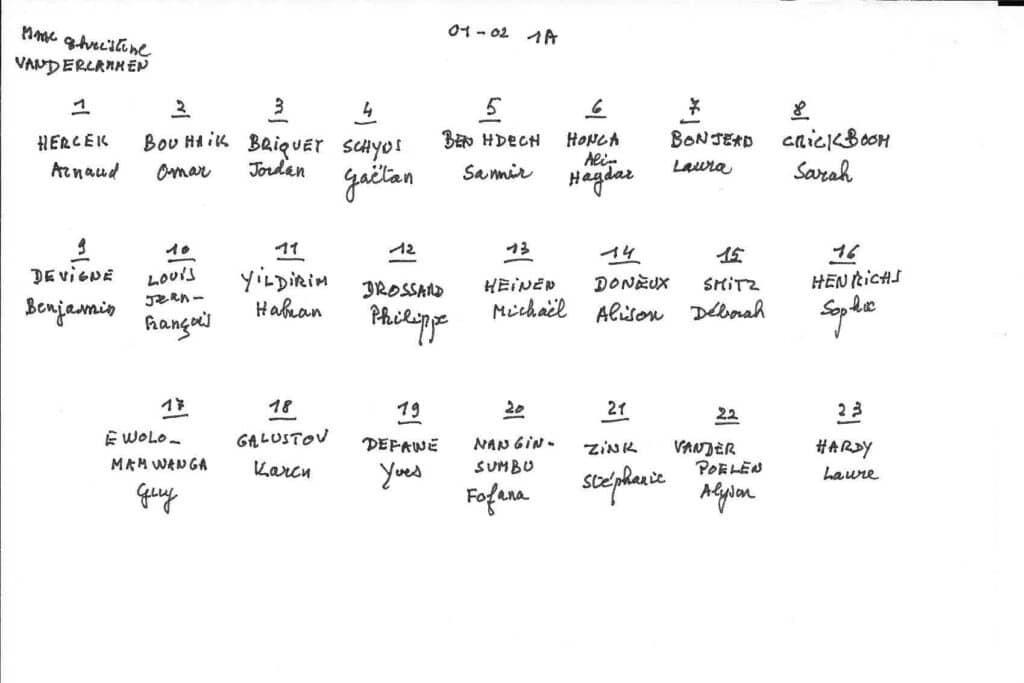 Mme Christine
VANDERLAMMEN
01-02 1A
1 2 3 4 5 6 7 8
HERCEK BOUHAIK BRIQUET SCHYUS BEN HDECH HONCA BONJEAD CRICKBOOM
Arnaud Omar Jordan Gaëtan Sammir Ali- Laura Sarah
Hagdar
9 10 11 12 13 14 15 16
DEVIGNE LOUIS YILDIRIM BROSSARD HEINEN DONEUX SMITZ HENRICHS
Benjamin JEAN- Hakan Philippe Michaël Alison Déborah Sophie
François
17 18 19 20 21 22 23
EWOLO- GALUSTOV DEFAWE NANGIN- ZINK VANDER HARDY
MAMWANGA Karen Yves SUMBU Stéphanie POELEN Laure
Guy Fofana Alyson